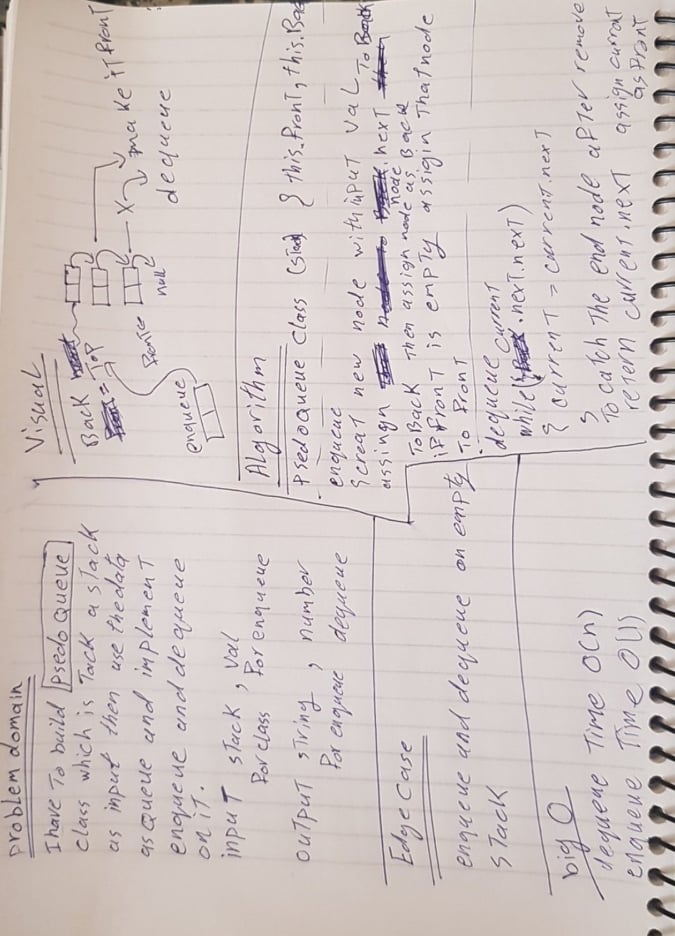 problem domain
I have To build Psedo Queue
class which is Tack a sTack
as input Then use the data
as Queue and implement
enqueue and dequeue
on iT.
inpuT sTack , val
For class For enqueue
ouTpuT sTring , number
For enqueue dequeue
Edge case
enqueue and dequeue on empTy
STack
big O
dequeue Time O(n)
enqueue Time O(1)
Visual
Back = Top
enqueue
null
X make iT FronT
dequeue
Algorithm
Psedo Queue class (sTack) { this.FronT, this.Back
enqueue
{ creat new node with inpuT val
assingn node.next To Back
To Back Then assign node as Back
if FronT is empTy assigin That node
To FronT
dequeue
while (current.next.next)
{ current = current.next
}
To catch The end node aFTer remove
reTern current.next assign current
as FronT